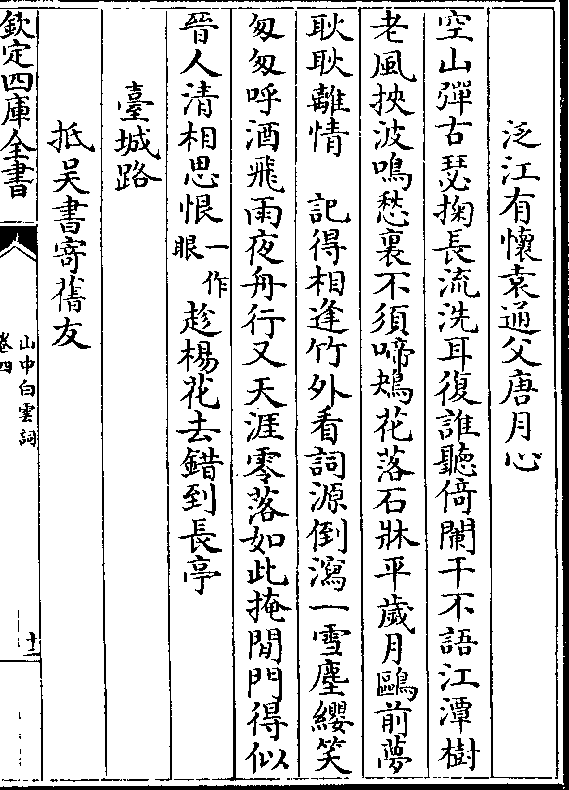 泛江有懷袁通父唐月心
空山彈古瑟掬長流洗耳復誰聽倚闌干不語江潭樹
老風挾波鳴愁裏不須啼鴂花落石牀平歲月鷗前夢
耿耿離情　記得相逢竹外看詞源倒瀉一雪塵纓笑
匆匆呼酒飛雨夜舟行又天涯零落如此掩閒門得似
晉人清相思恨一作眼趁楊花去錯到長亭
臺城路
抵吳書寄舊友
欽定四庫全書
山中白雲詞
卷四